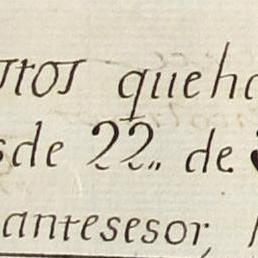 otros que ha
sde 22,, de
antesesor,